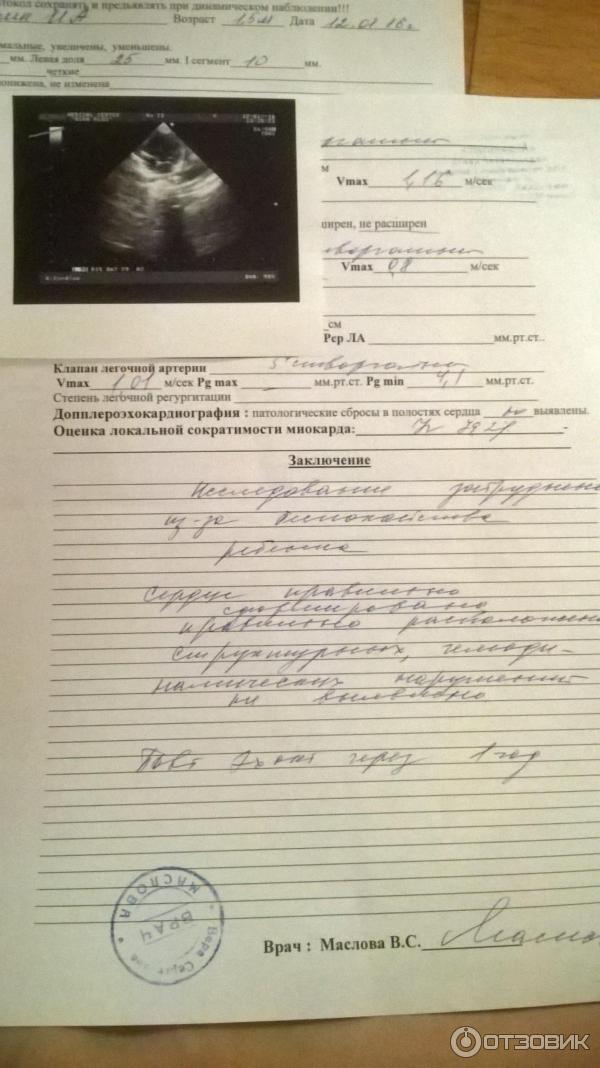 протокол сохранять и предъявлять при динамическом наблюдении!!!
Возраст 1,5м Дата 12.01.16г
увеличены, уменьшены.
мм. Левая доля 25 мм. I сегмент 10 мм.
четкие
не изменена
MEDICAL CENTER
м
Vmax 1,16 м/сек
не расширен
Vmax 0,8 м/сек
см
Рср ЛА мм.рт.ст..
Клапан легочной артерии створчатый
Vmax 1,01 м/сек Pg max - мм.рт.ст. Pg min 4,1 мм.рт.ст..
Степень легочной регургитации
Допплероэхокардиография : патологические сбросы в полостях сердца не выявлены.
Оценка локальной сократимости миокарда:
Заключение
Исследование затруднено
из-за беспокойства
ребенка
Сердце правильно
сформировано
правильно расположено
структурных, гемоди-
намических нарушений
не выявлено
Повт ЭХОКГ через 1 год
МАСЛОВА
ВРАЧ
Вера
Врач : Маслова В.С.
ОТЗОВИК